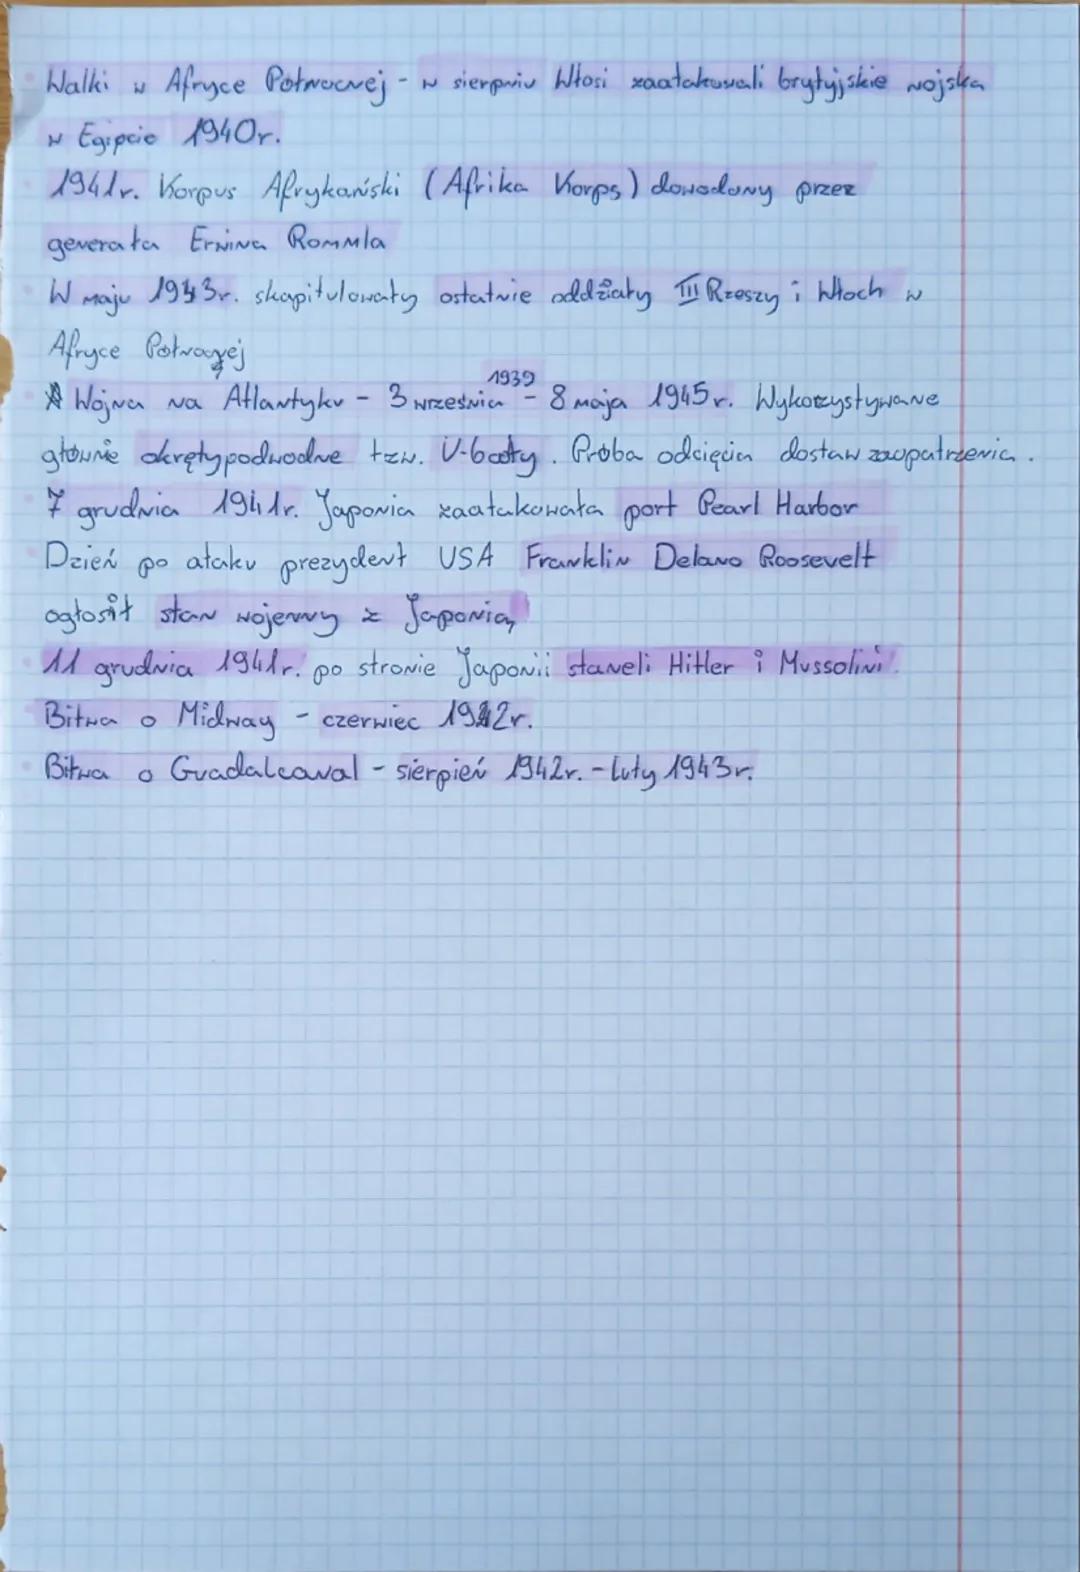 Walki w Afryce Północnej - w sierpniu Włosi zaatakowali brytyjskie wojska
w Egipcie 1940r.
1941r. Korpus Afrykański (Afrika Korps) dowodzony przez
generała Erwina Rommla
W maju 1943r. skapitulowały ostatnie oddziały III Rzeszy i Włoch w
Afryce Północnej
Wojna na Atlantyku - 3 września 1939 - 8 maja 1945r. Wykorzystywane
głównie okręty podwodne tzw. U-booty. Próba odcięcia dostaw zaopatrzenia.
7 grudnia 1941r. Japonia zaatakowała port Pearl Harbor
Dzień po ataku prezydent USA Franklin Delano Roosevelt
ogłosił stan wojenny z Japonią
11 grudnia 1941r. po stronie Japonii staneli Hitler i Mussolini.
Bitwa o Midway - czerwiec 1942r.
Bitwa o Guadalcanal - sierpień 1942r. - luty 1943r.